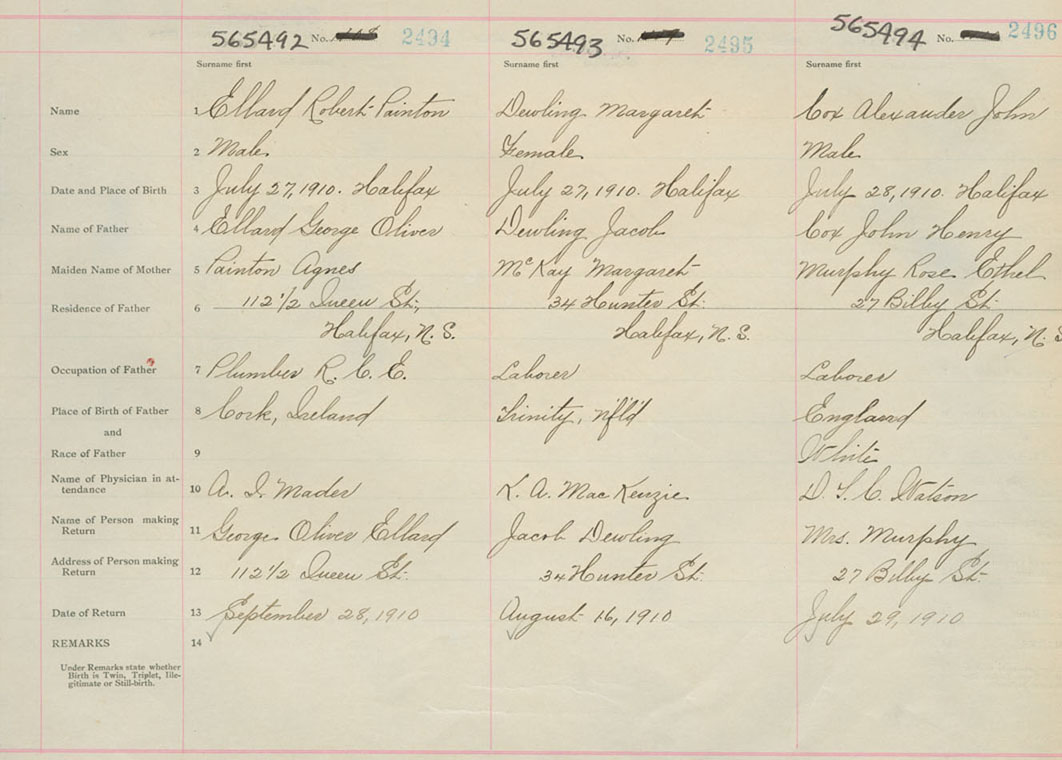 565492 No. 2494 565493 No. 2495 565494 No. 2496
Surname first Surname first Surname first
Name 1 Ellard Robert Painton Dewling Margaret Cox Alexander John
Sex 2 Male Female Male
Date and Place of Birth 3 July 27, 1910. Halifax July 27, 1910. Halifax July 28, 1910. Halifax
Name of Father 4 Ellard George Oliver Dewling Jacob Cox John Henry
Maiden Name of Mother 5 Painton Agnes McKay Margaret Murphy Rose Ethel
Residence of Father 6 112 1/2 Queen St., 34 Hunter St. 27 Bilby St.
Halifax, N. S. Halifax, N. S. Halifax, N. S
Occupation of Father 7 Plumber R. C. E. Laborer Laborer
Place of Birth of Father 8 Cork, Ireland Trinity, Nfld England
and
Race of Father 9 White
Name of Physician in at-
tendance 10 A. I. Mader K. A. MacKenzie D. Watson
Name of Person making
Return 11 George Oliver Ellard Jacob Dewling Mrs. Murphy
Address of Person making
Return 12 112 1/2 Queen St. 34 Hunter St. 27 Bilby St.
Date of Return 13 September 28, 1910 August 16, 1910 July 29, 1910
REMARKS 14
Under Remarks state whether
Birth is Twin, Triplet, Ille-
gitimate or Still-birth.